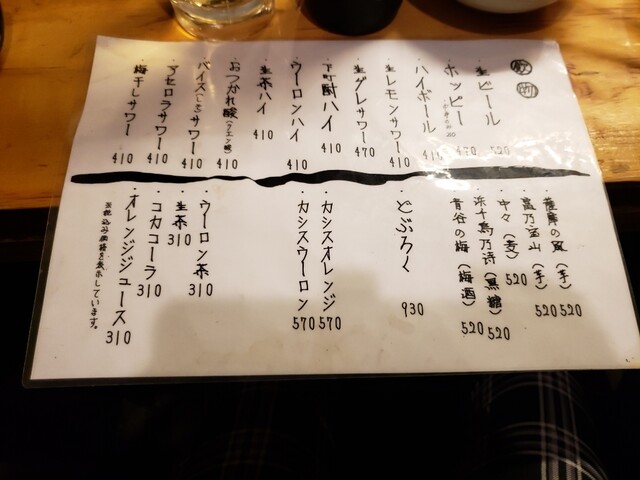 飲物
・生ビール 520
・ホッピー 470
・ハイボール 410
・生レモンサワー 410
・生グレサワー 470
・下町酎ハイ 410
・ウーロンハイ 410
・生茶ハイ 410
・おつかれ酸(クエン酸) 410
・バイス(しそ)サワー 410
・アセロラサワー 410
・梅干しサワー 410
・薩摩の風(芋) 520
(芋) 520
・中々(麦) 520
(黒糖) 520
・青谷の梅(梅酒) 520
・どぶろく 930
・カシスオレンジ 570
・カシスウーロン 570
・ウーロン茶 310
・生茶 310
・コカコーラ 310
・オレンジジュース 310
※税込み価格を表示しています。